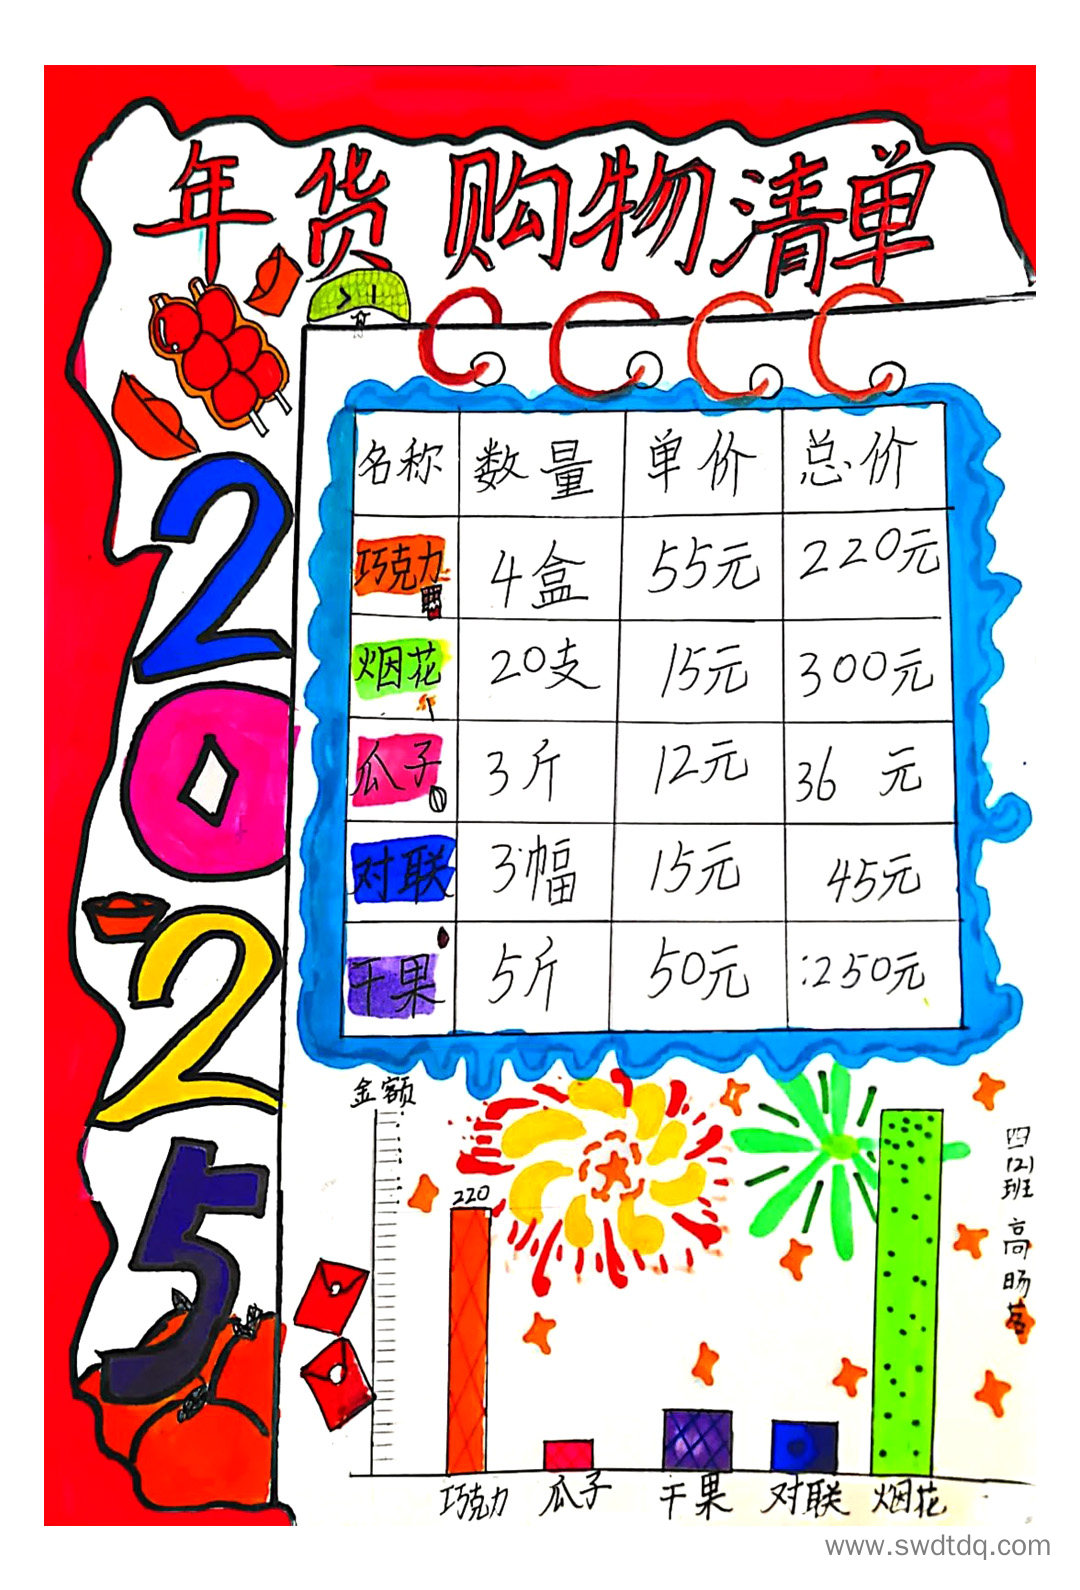 年货购物清单
2025
名称 数量 单价 总价
巧克力 4盒 55元 220元
烟花 20支 15元 300元
瓜子 3斤 12元 36 元
对联 3幅 15元 45元
干果 5斤 50元 :250元
金额
220
巧克力 瓜子 干果 对联 烟花
四(2)班 高旸
www.swdtdq.com